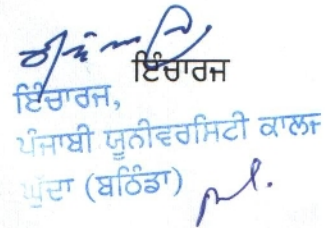 ਇੰਚਾਰਜ
ਇੰਚਾਰਜ,
ਪੰਜਾਬੀ ਯੂਨੀਵਰਸਿਟੀ ਕਾਲਜ
ਘੁੱਦਾ (ਬਠਿੰਡਾ)